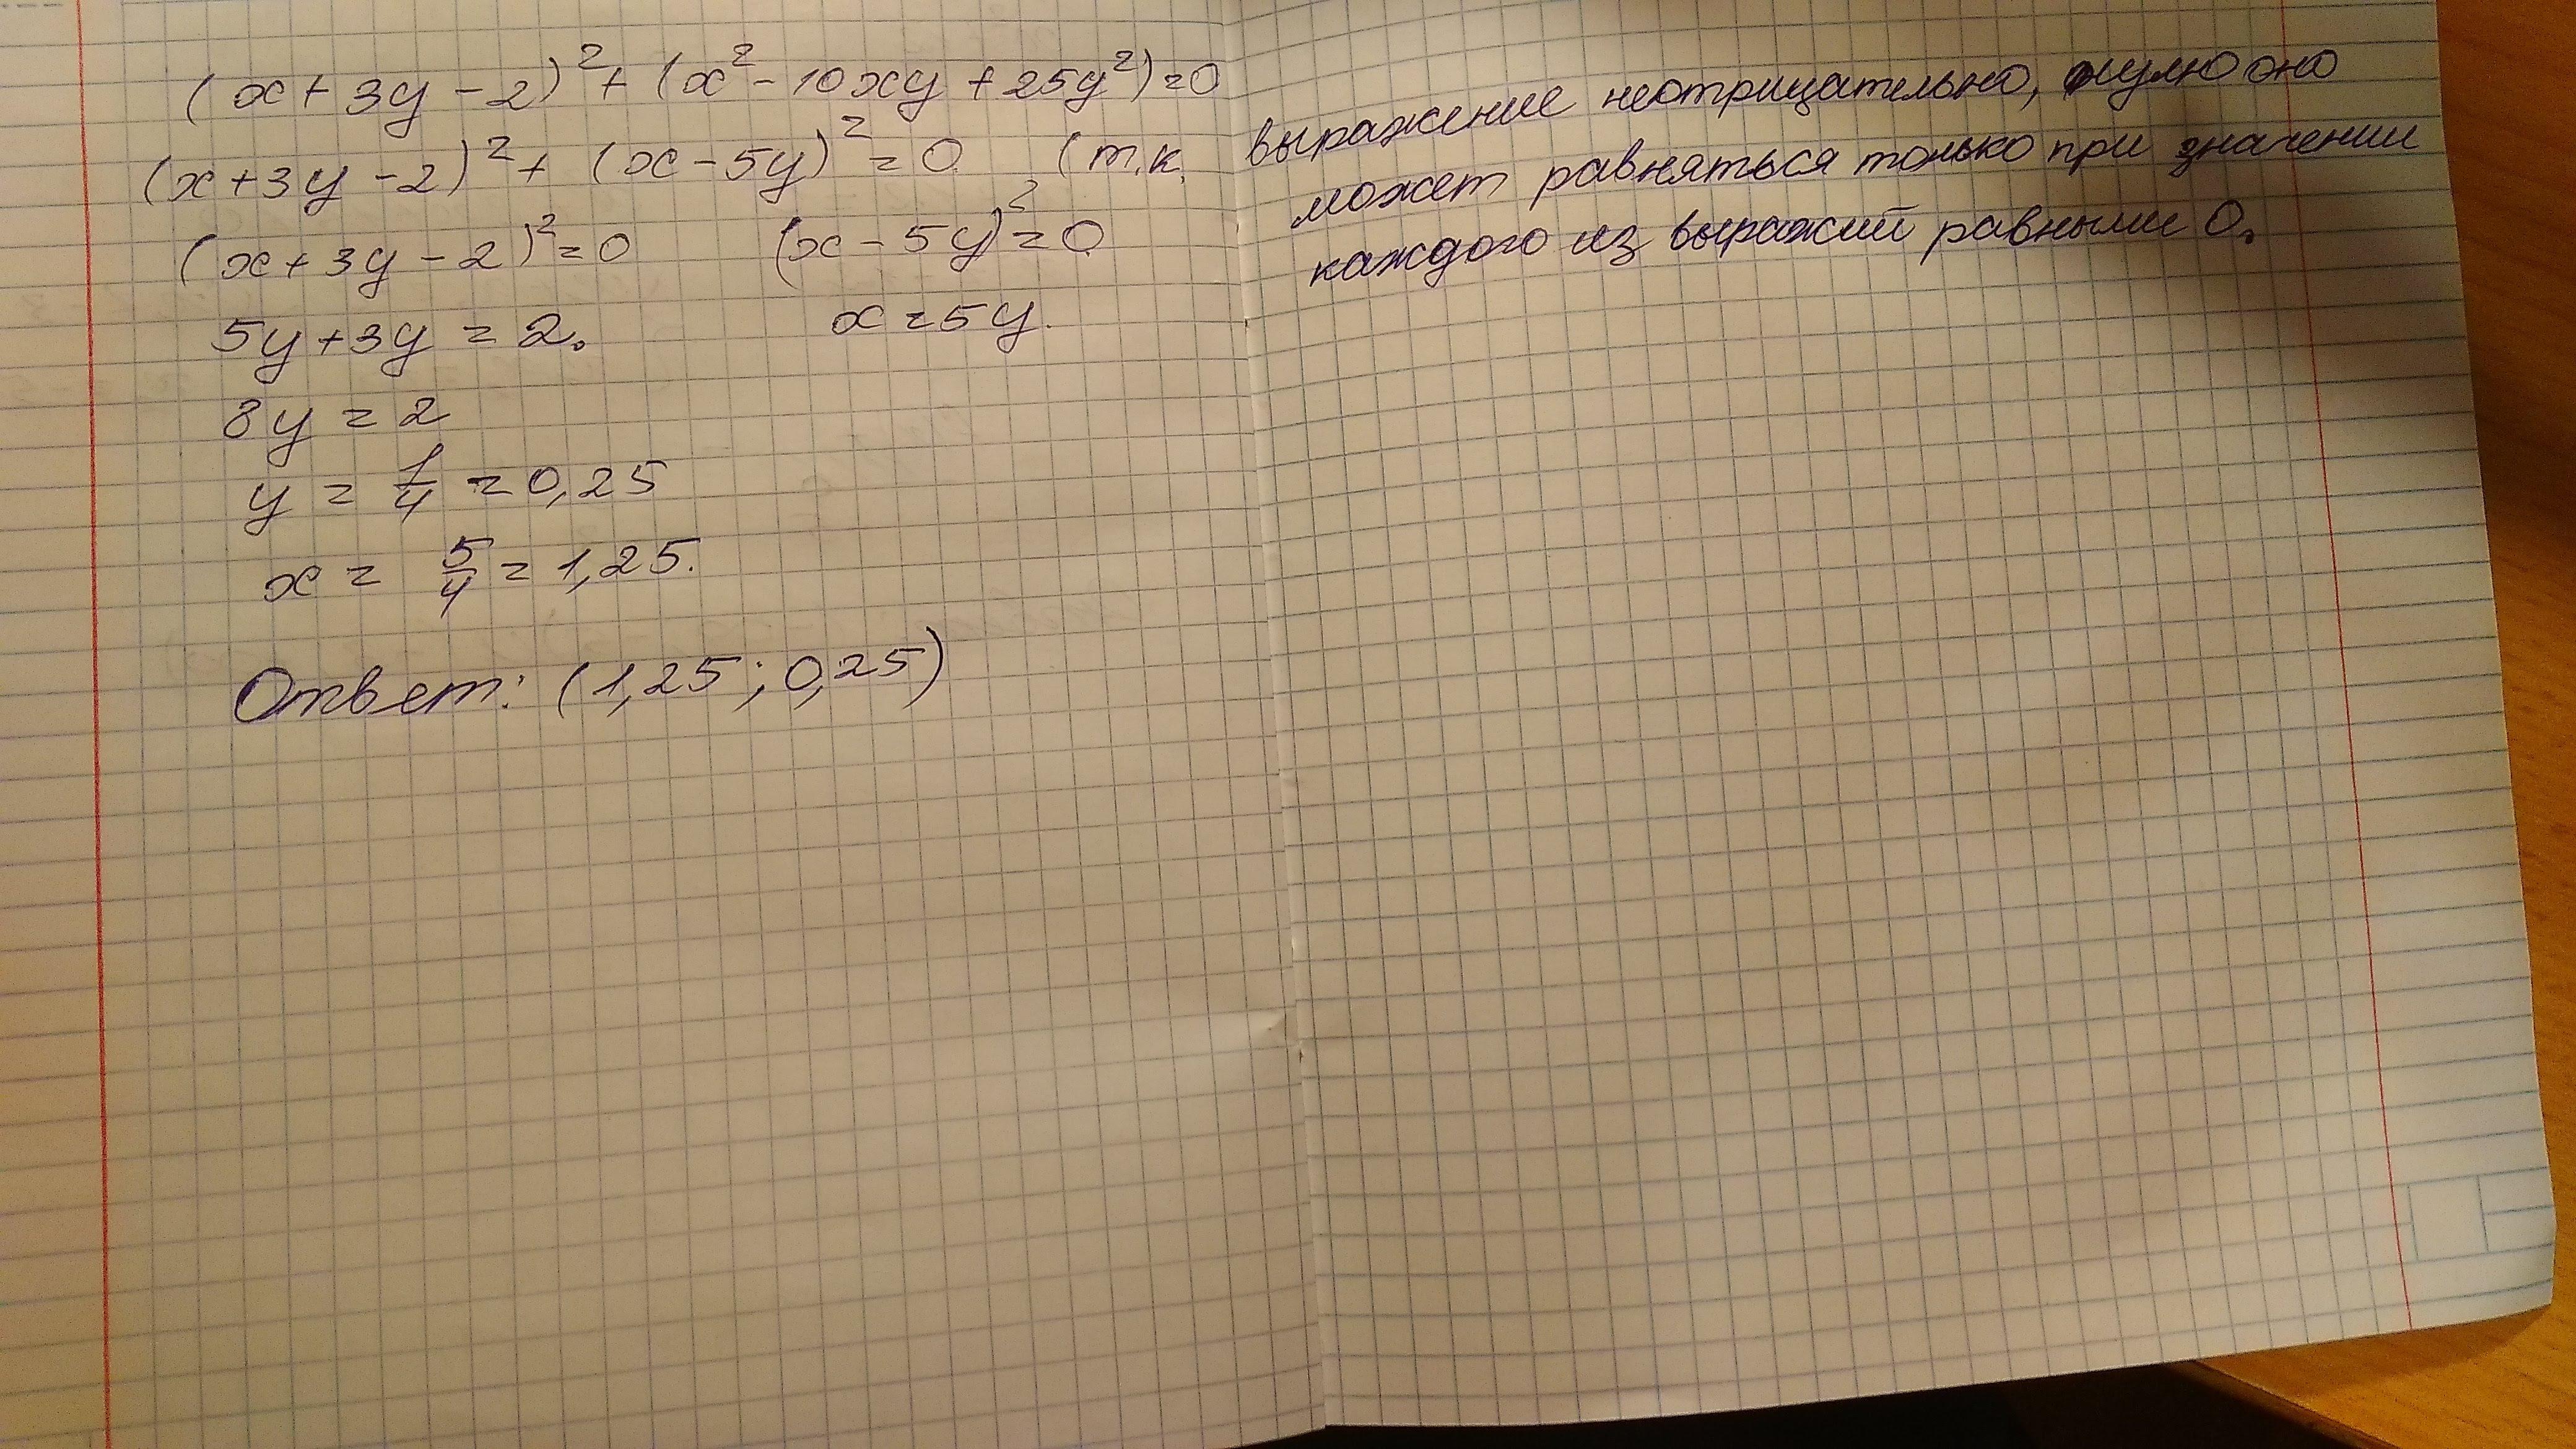 (x + 3y - 2)² + (x² - 10xy + 25y²) = 0
(x + 3y - 2)² + (x - 5y)² = 0. (т.к. выражение неотрицательно, нулю оно
может равняться только при значении
каждого из выражий равными 0.
(x + 3y - 2)² = 0 (x - 5y)² = 0
5y + 3y = 2. x = 5y.
8y = 2
y = 1/4 = 0,25
x = 5/4 = 1,25.
Ответ: (1,25; 0,25)